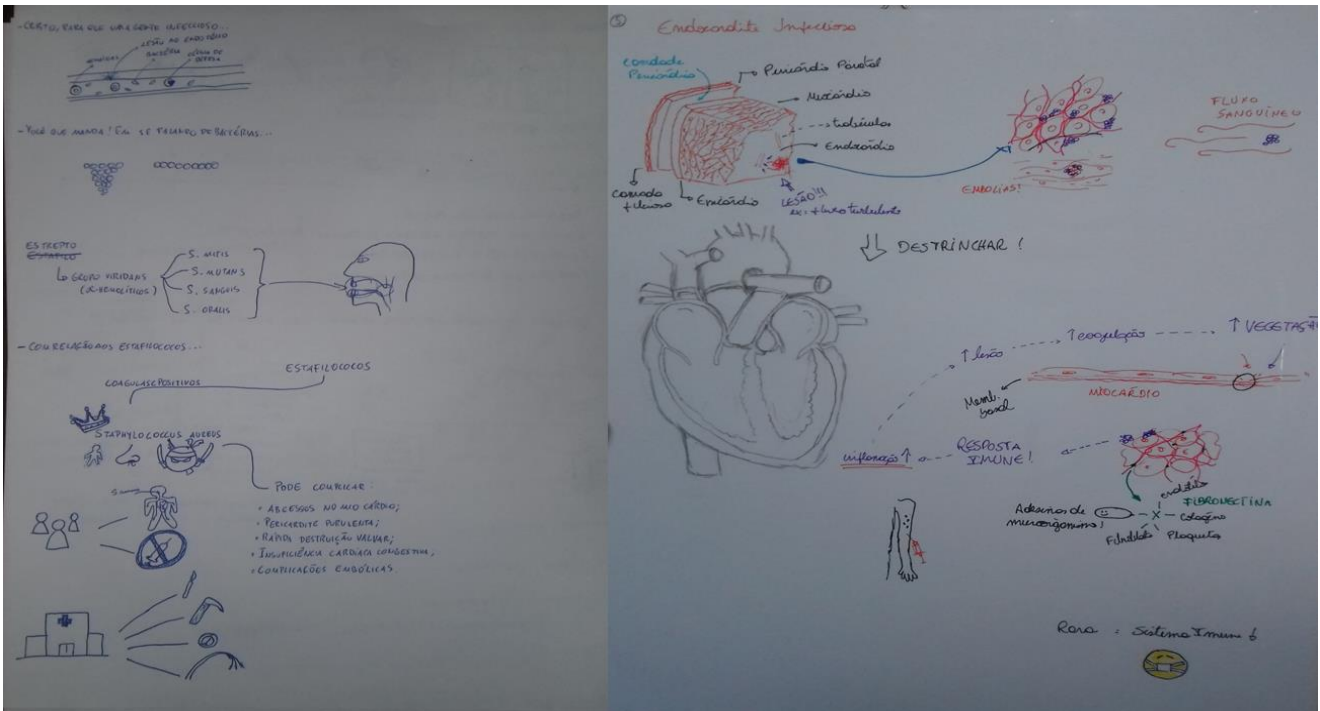 - CERTO, PARA QUE UM AGENTE INFECCIOSO...
LESÃO NO ENDOTÉLIO
BACTÉRIA
CÉLULA DE DEFESA
- VOCÊ QUE MANDA! EM SE FALANDO DE BACTÉRIAS...
ESTREPTO
ESTAFILO
GRUPO VIRIDANS
(α-HEMOLÍTICOS)
S. MITIS
S. MUTANS
S. SANGUIS
S. ORALIS
- COM RELAÇÃO AOS ESTAFILOCOCOS...
ESTAFILOCOCOS
COAGULASE POSITIVOS
STAPHYLOCOCCUS AUREUS
PODE COMPLICAR:
• ABCESSOS NO MIOCÁRDIO;
• PERICARDITE PURULENTA;
• RÁPIDA DESTRUIÇÃO VALVAR;
• INSUFICIÊNCIA CARDÍACA CONGESTIVA;
• COMPLICAÇÕES EMBÓLICAS.
Endocardite Infecciosa
Pericárdio Parietal
Miocárdio
Endocárdio
Epicárdio
LESÃO!!!
ex: fluxo turbulento
EMBOLIAS!
FLUXO
SANGUÍNEO
DESTRINCHAR!
↑ lesão
↑ coagulação
↑ VEGETAÇÃO
Memb.
basal
MIOCÁRDIO
inflamação ↑
RESPOSTA
IMUNE!
FIBRONECTINA
Colágeno
Plaquetas
Adesinas de
microrganismos!
Rara : Sistema Imune